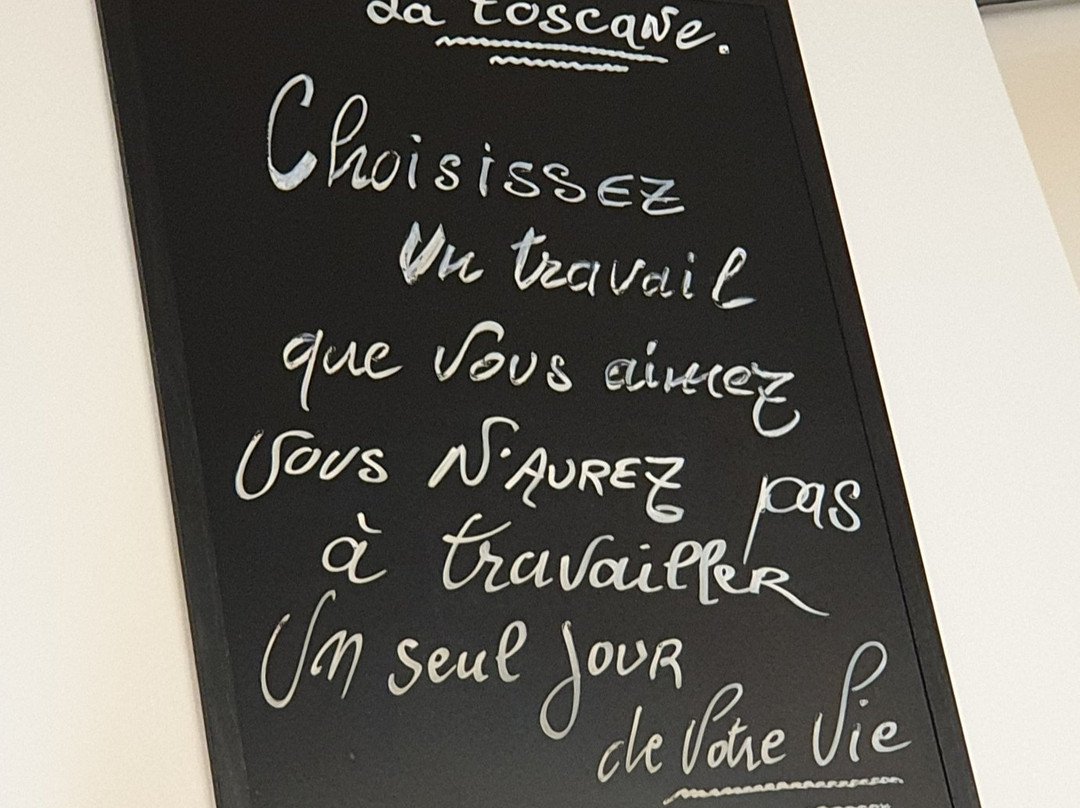 La toscane.
Choisissez
Un travail
que Vous aimez
Vous N'AUREZ pas
à travailler
Un seul Jour
de Votre Vie